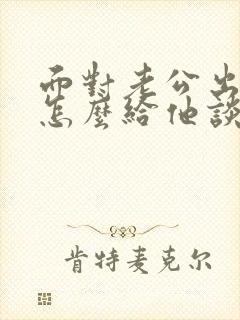 面對老公出
怎麼給他談
肯特麦克尔